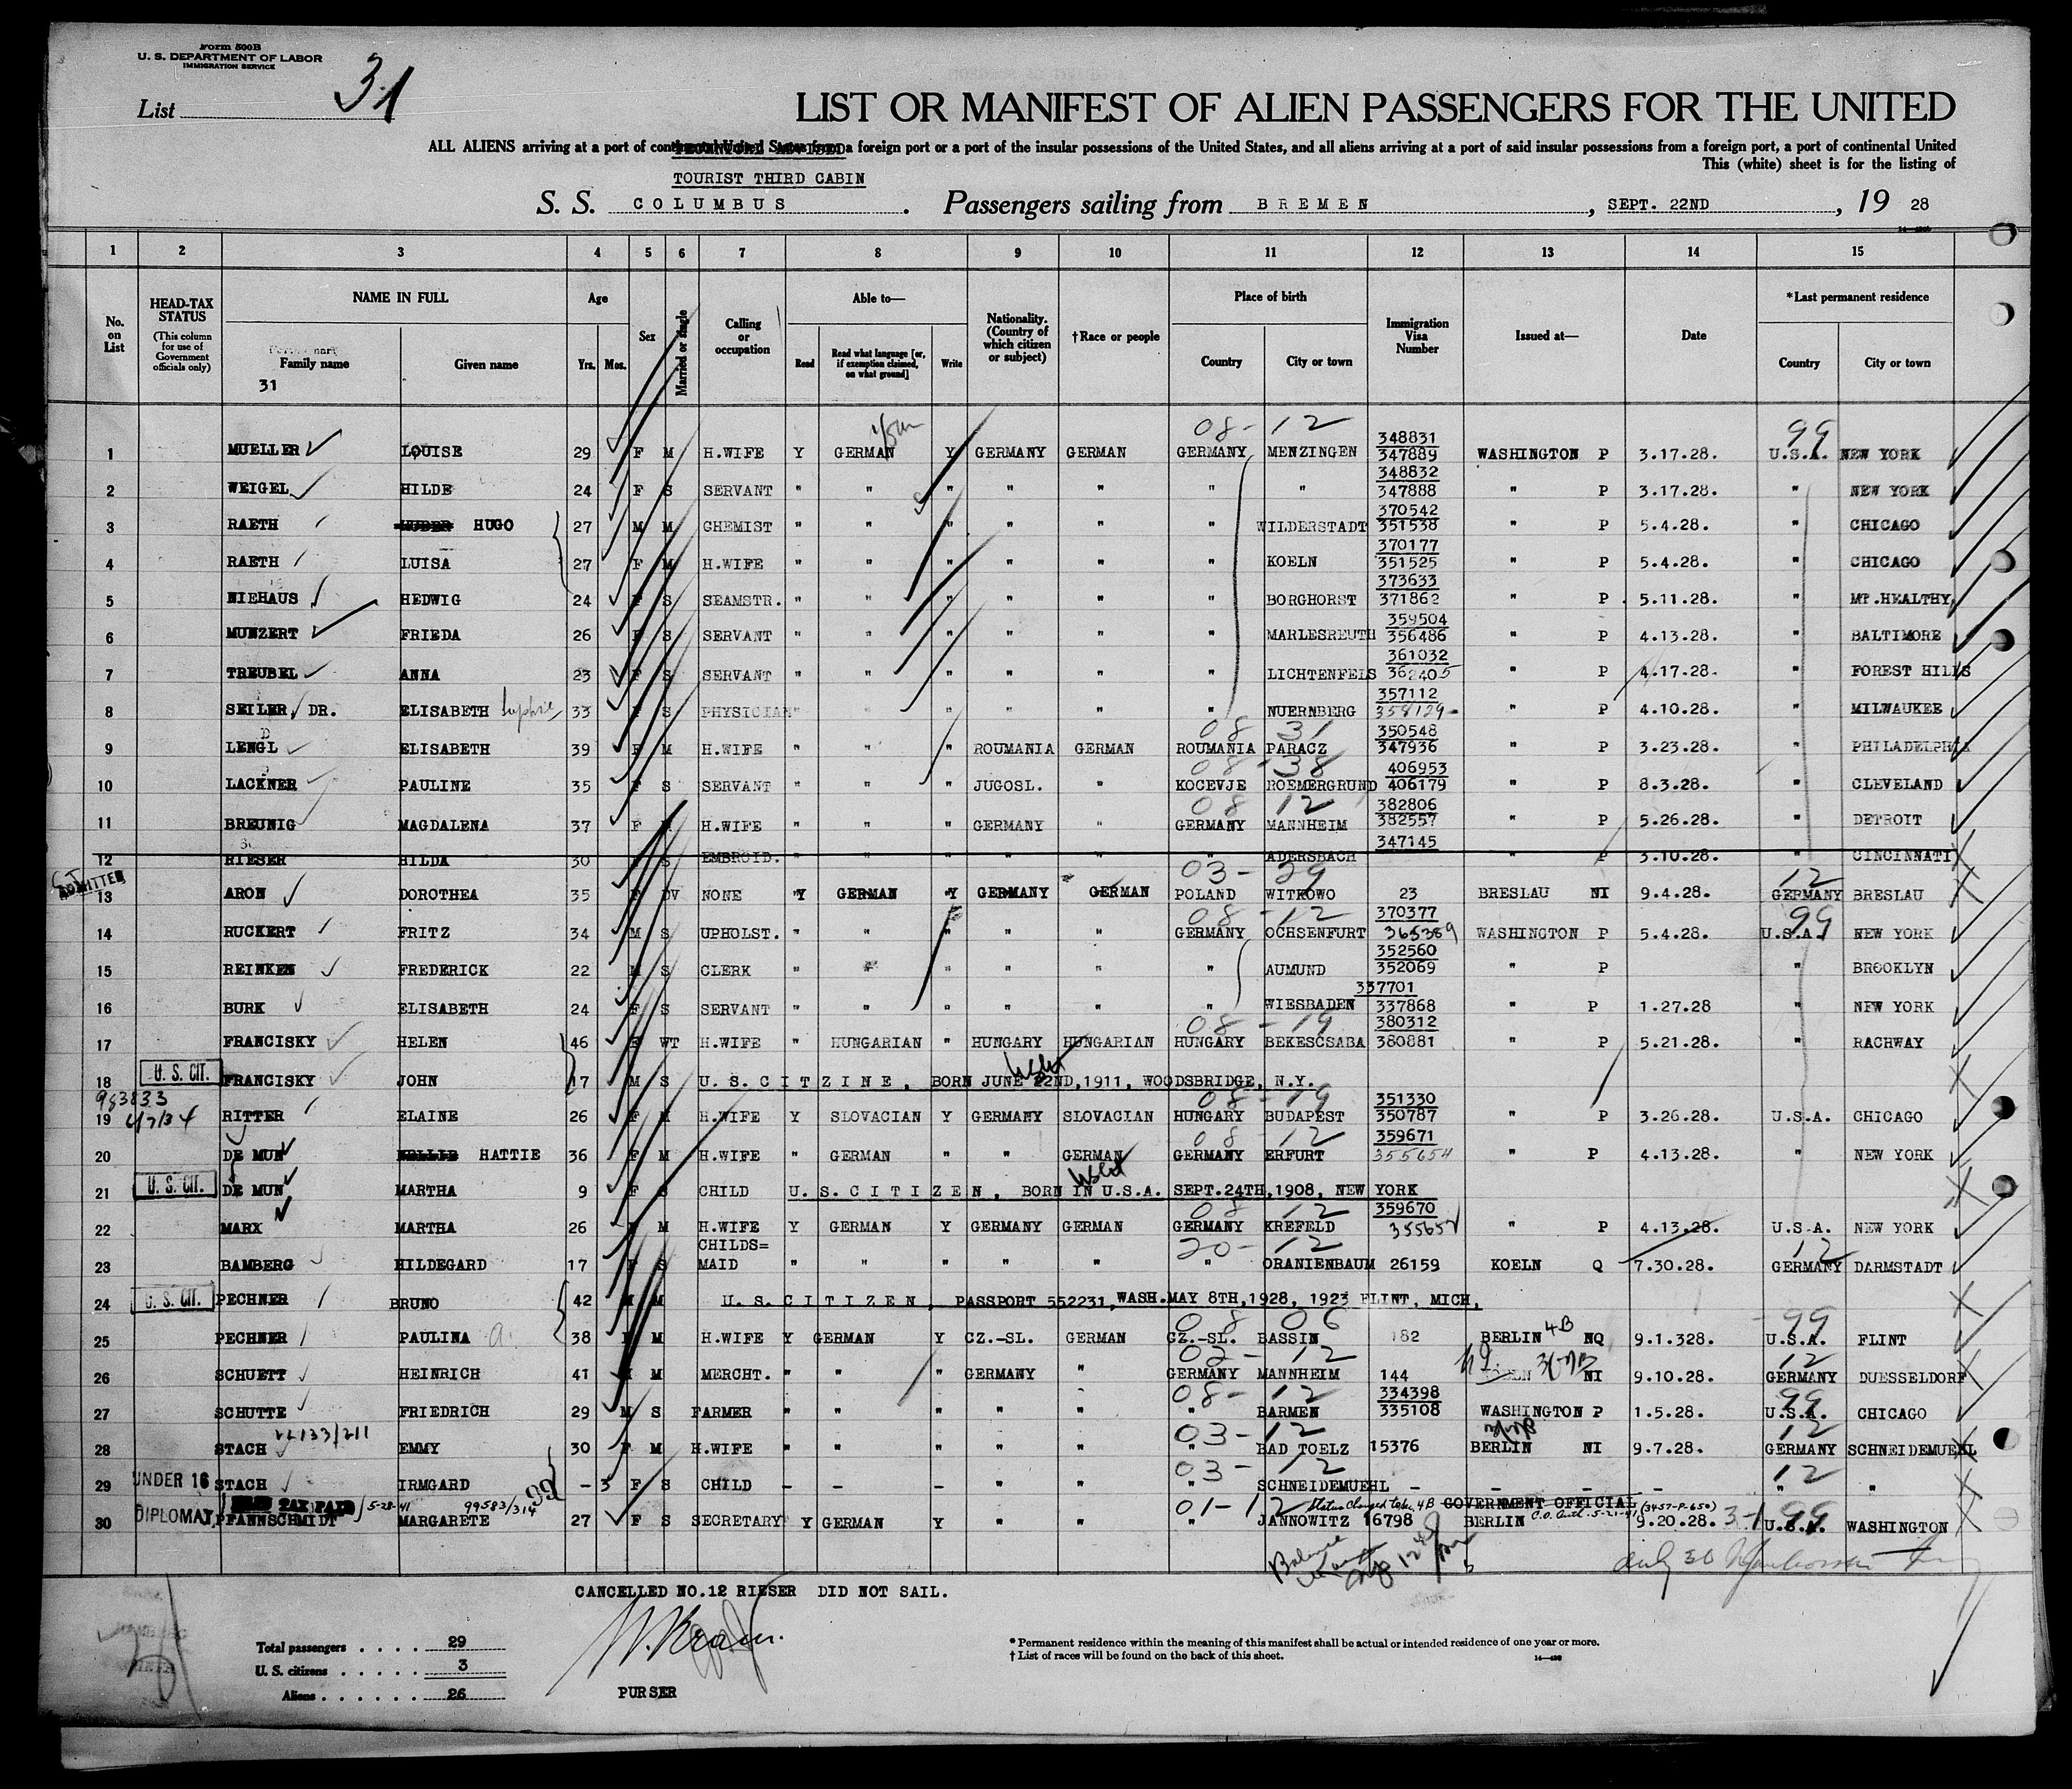 Form 500B
U. S. DEPARTMENT OF LABOR
IMMIGRATION SERVICE
List 31
LIST OR MANIFEST OF ALIEN PASSENGERS FOR THE UNITED
ALL ALIENS arriving at a port of continental United States from a foreign port or a port of the insular possessions of the United States, and all aliens arriving at a port of said insular possessions from a foreign port, a port of continental United
This (white) sheet is for the listing of
TOURIST THIRD CABIN
S. S. COLUMBUS . Passengers sailing from BREMEN , SEPT. 22ND , 19 28
1 2 3 4 5 6 7 8 9 10 11 12 13 14 15
No. on List
HEAD-TAX STATUS (This column for use of Government officials only)
NAME IN FULL
Family name
Given name
31
Age
Yrs. Mos.
Sex
Married or single
Calling or occupation
Able to—
Read
Read what language [or, if exemption claimed, on what ground]
Write
Nationality. (Country of which citizen or subject)
†Race or people
Place of birth
Country
City or town
Immigration Visa Number
Issued at—
Date
*Last permanent residence
Country
City or town
08-12 348831 99
1 MUELLER LOUISE 29 F M H.WIFE Y GERMAN Y GERMANY GERMAN GERMANY MENZINGEN 347889 WASHINGTON P 3.17.28. U.S.A. NEW YORK
348832
2 WEIGEL HILDE 24 F S SERVANT " " " " " " " 347888 " P 3.17.28. " NEW YORK
370542
3 RAETH HUGO 27 M M CHEMIST " " " " " WILDERSTADT 351538 " P 5.4.28. " CHICAGO
370177
4 RAETH LUISA 27 F M H.WIFE " " " " " " KOELN 351525 " P 5.4.28. " CHICAGO
373633
5 NIEHAUS HEDWIG 24 F S SEAMSTR. " " " " " " BORGHORST 371862 " P 5.11.28. " MT.HEALTHY
359504
6 MUNZERT FRIEDA 26 F S SERVANT " " " " " " MARLESREUTH 356486 " P 4.13.28. " BALTIMORE
361032
7 TREUBEL ANNA 23 F S SERVANT " " " " " " LICHTENFELS 362405 " P 4.17.28. " FOREST HILLS
357112
8 SEILER, DR. ELISABETH Sophie 33 F S PHYSICIAN " " " " " " NUERNBERG 358129 " P 4.10.28. " MILWAUKEE
08 31 350548
9 LENGL ELISABETH 39 F M H.WIFE " " " ROUMANIA GERMAN ROUMANIA PARACZ 347936 " P 3.23.28. " PHILADELPHIA
08-38 406953
10 LACKNER PAULINE 35 F S SERVANT " " " JUGOSL. " KOCEVJE ROEMERGRUND 406179 " P 8.3.28. " CLEVELAND
08 12 382806
11 BREUNIG MAGDALENA 37 F M H.WIFE " " " GERMANY " GERMANY MANNHEIM 382557 " P 5.26.28. " DETROIT
347145
12 RIESER HILDA 30 F S EMBROID. " " " " " " ADERSBACH " P 3.10.28. " CINCINNATI
ADMITTED 03-29 12
13 ARON DOROTHEA 35 F DV NONE Y GERMAN Y GERMANY GERMAN POLAND WITKOWO 23 BRESLAU NI 9.4.28. GERMANY BRESLAU
08-12 370377 99
14 RUCKERT FRITZ 34 M S UPHOLST. " " " " " GERMANY OCHSENFURT 365389 WASHINGTON P 5.4.28. U.S.A. NEW YORK
352560
15 REINKEN FREDERICK 22 M S CLERK " " " " " AUMUND 352069 " P " BROOKLYN
337701
16 BURK ELISABETH 24 F S SERVANT " " " " " " WIESBADEN 337868 " P 1.27.28 " NEW YORK
08-19 380312
17 FRANCISKY HELEN 46 F WT H.WIFE " HUNGARIAN " HUNGARY HUNGARIAN HUNGARY BEKESCSABA 380881 " P 5.21.28. " RACHWAY
U. S. CIT.
18 FRANCISKY JOHN 17 M S U. S. CITZINE, BORN JUNE 22ND,1911, WOODSBRIDGE, N.Y.
983833 08-19 351330
19 4/7/34 RITTER ELAINE 26 F M H.WIFE Y SLOVACIAN Y GERMANY SLOVACIAN HUNGARY BUDAPEST 350787 " P 3.26.28. U.S.A. CHICAGO
08-12 359671
20 DE MUN HATTIE 36 F M H.WIFE " GERMAN " " GERMAN GERMANY ERFURT 355654 " P 4.13.28. " NEW YORK
U. S. CIT.
21 DE MUN MARTHA 9 F S CHILD U. S. CITIZEN, BORN IN U.S.A. SEPT.24TH,1908, NEW YORK
08 12 359670
22 MARX MARTHA 26 F M H.WIFE Y GERMAN Y GERMANY GERMAN GERMANY KREFELD 355652 " P 4.13.28. U.S.A. NEW YORK
CHILDS= 20-12 12
23 BAMBERG HILDEGARD 17 F S MAID " " " " " " ORANIENBAUM 26159 KOELN Q 7.30.28. GERMANY DARMSTADT
U. S. CIT.
24 PECHNER BRUNO 42 M M U. S. CITIZEN, PASSPORT 552231, WASH.MAY 8TH,1928, 1923 FLINT, MICH,
08 06 4B 99
25 PECHNER PAULINA a. 38 F M H.WIFE Y GERMAN Y CZ.-SL. GERMAN CZ.-SL. BASSIN 182 BERLIN NQ 9.1.328. U.S.A. FLINT
02-12 12
26 SCHUETT HEINRICH 41 M M MERCHT. " " " GERMANY " GERMANY MANNHEIM 144 NI 9.10.28. GERMANY DUESSELDORF
08-12 334398 99
27 SCHUTTE FRIEDRICH 29 M S FARMER " " " " " " BARMEN 335108 WASHINGTON P 1.5.28. U.S.A. CHICAGO
03-12 12
28 STACH EMMY 30 F M H.WIFE " " " " " " BAD TOELZ 15376 BERLIN NI 9.7.28. GERMANY SCHNEIDEMUEHL
03-12 12
29 UNDER 16 STACH IRMGARD - 3 F S CHILD - - - " " " SCHNEIDEMUEHL - - - - " "
TAX PAID 5-28-41 99583/314 99 01-12 Status Changed to Sec. 4B GOVERNMENT OFFICIAL (3457-P-650)
C.O. Auth. 5-21-41
30 DIPLOMAT, PFANNSCHMIDT MARGARETE 27 F S SECRETARY Y GERMAN Y " " " JANNOWITZ 16798 BERLIN 9.20.28. 3-1 99 U.S.A. WASHINGTON
CANCELLED NO.12 RIESER DID NOT SAIL.
Total passengers . . . . 29
U. S. citizens . . . . . 3
Aliens . . . . . . 26
PURSER
* Permanent residence within the meaning of this manifest shall be actual or intended residence of one year or more.
† List of races will be found on the back of this sheet.